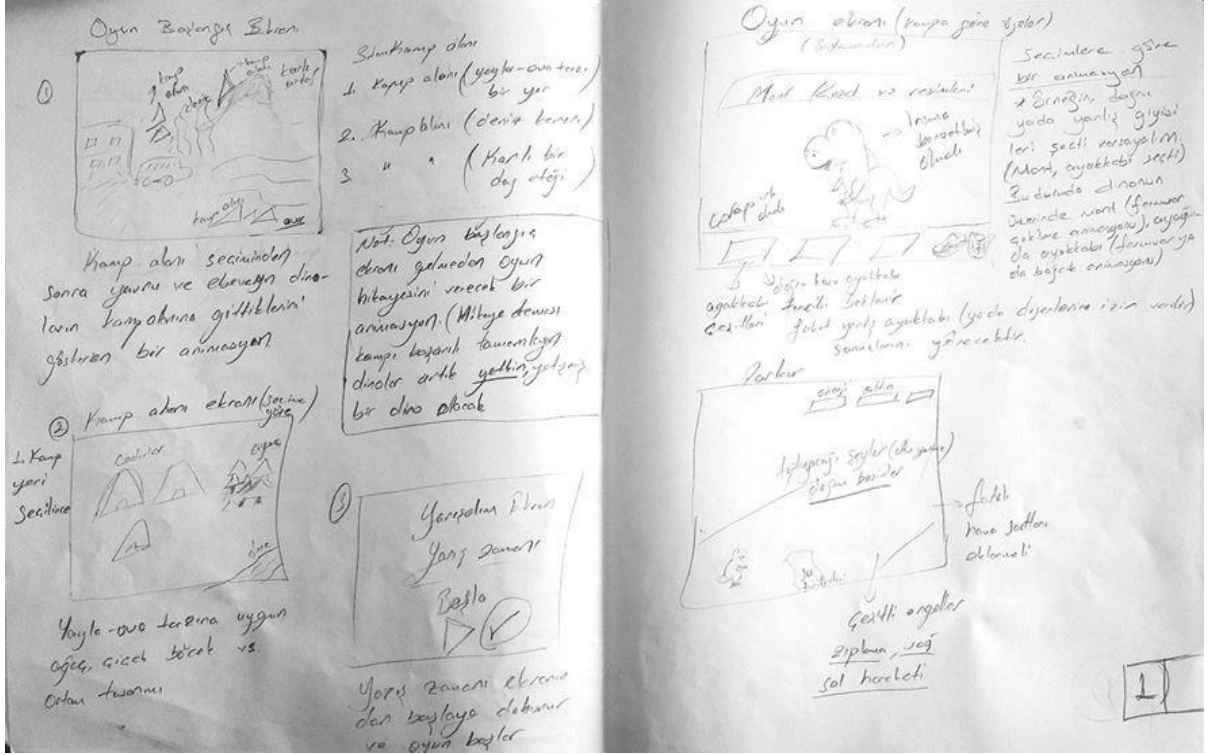 Oyun Başlangıç Ekranı
①
kamp alanı
kamp alanı
karlı
kamp alanı
Kamp alanı seçiminden
sonra yavru ve ebeveyn dino-
ların kamp alanına gittiklerini
gösteren bir animasyon
② Kamp alanı ekranı (seçime göre)
1. Kamp
yeri
Seçilince
Çadırlar
dere
Yayla-ova tarzına uygun
ağaç, çiçek böcek vs.
Ortam tasarımı
Kamp alanı
1. Kamp alanı (yayla-ova tarzı
bir yer
2. Kamp alanı (deniz kenarı)
3. " " (Karlı bir
dağ eteği)
Not: Oyun başlangıç
ekranı gelmeden oyun
hikayesini verecek bir
animasyon. (Hikaye
kampı başarılı tamamlayan
dinolar artık yetkin, yetişmiş
bir dino olacak
③
Yarışalım Ekran
Yarış zamanı
Başla
Yarış zamanı ekranın
dan başlaya dokunur
ve oyun başlar
Oyun ekranı (kampa göre
Mont Kazak ve resimleri
insana
benzetilmiş
olmalı
doğru hava ayakkabı
ayakkabı
çeşitleri
fakat yanlış ayakkabı (ya da diğerlerine izin verilir)
sonuçlarını görecektir.
Seçimlere göre
bir animasyon
* Örneğin, doğru
yada yanlış giysi
leri seçti varsayalım.
(Mont, ayakkabı seçti)
Bu durumda dinonun
üzerinde mont (fermuar
çekilme animasyonu), ayağın
da ayakkabı (fermuar ya
da bağcık animasyonu)
Parkur
enerji altın
toplayacağı şeyler
doğru besinler
farklı
hava şartları
eklenmeli
Çeşitli engeller
zıplama, sağ
sol hareketi
1